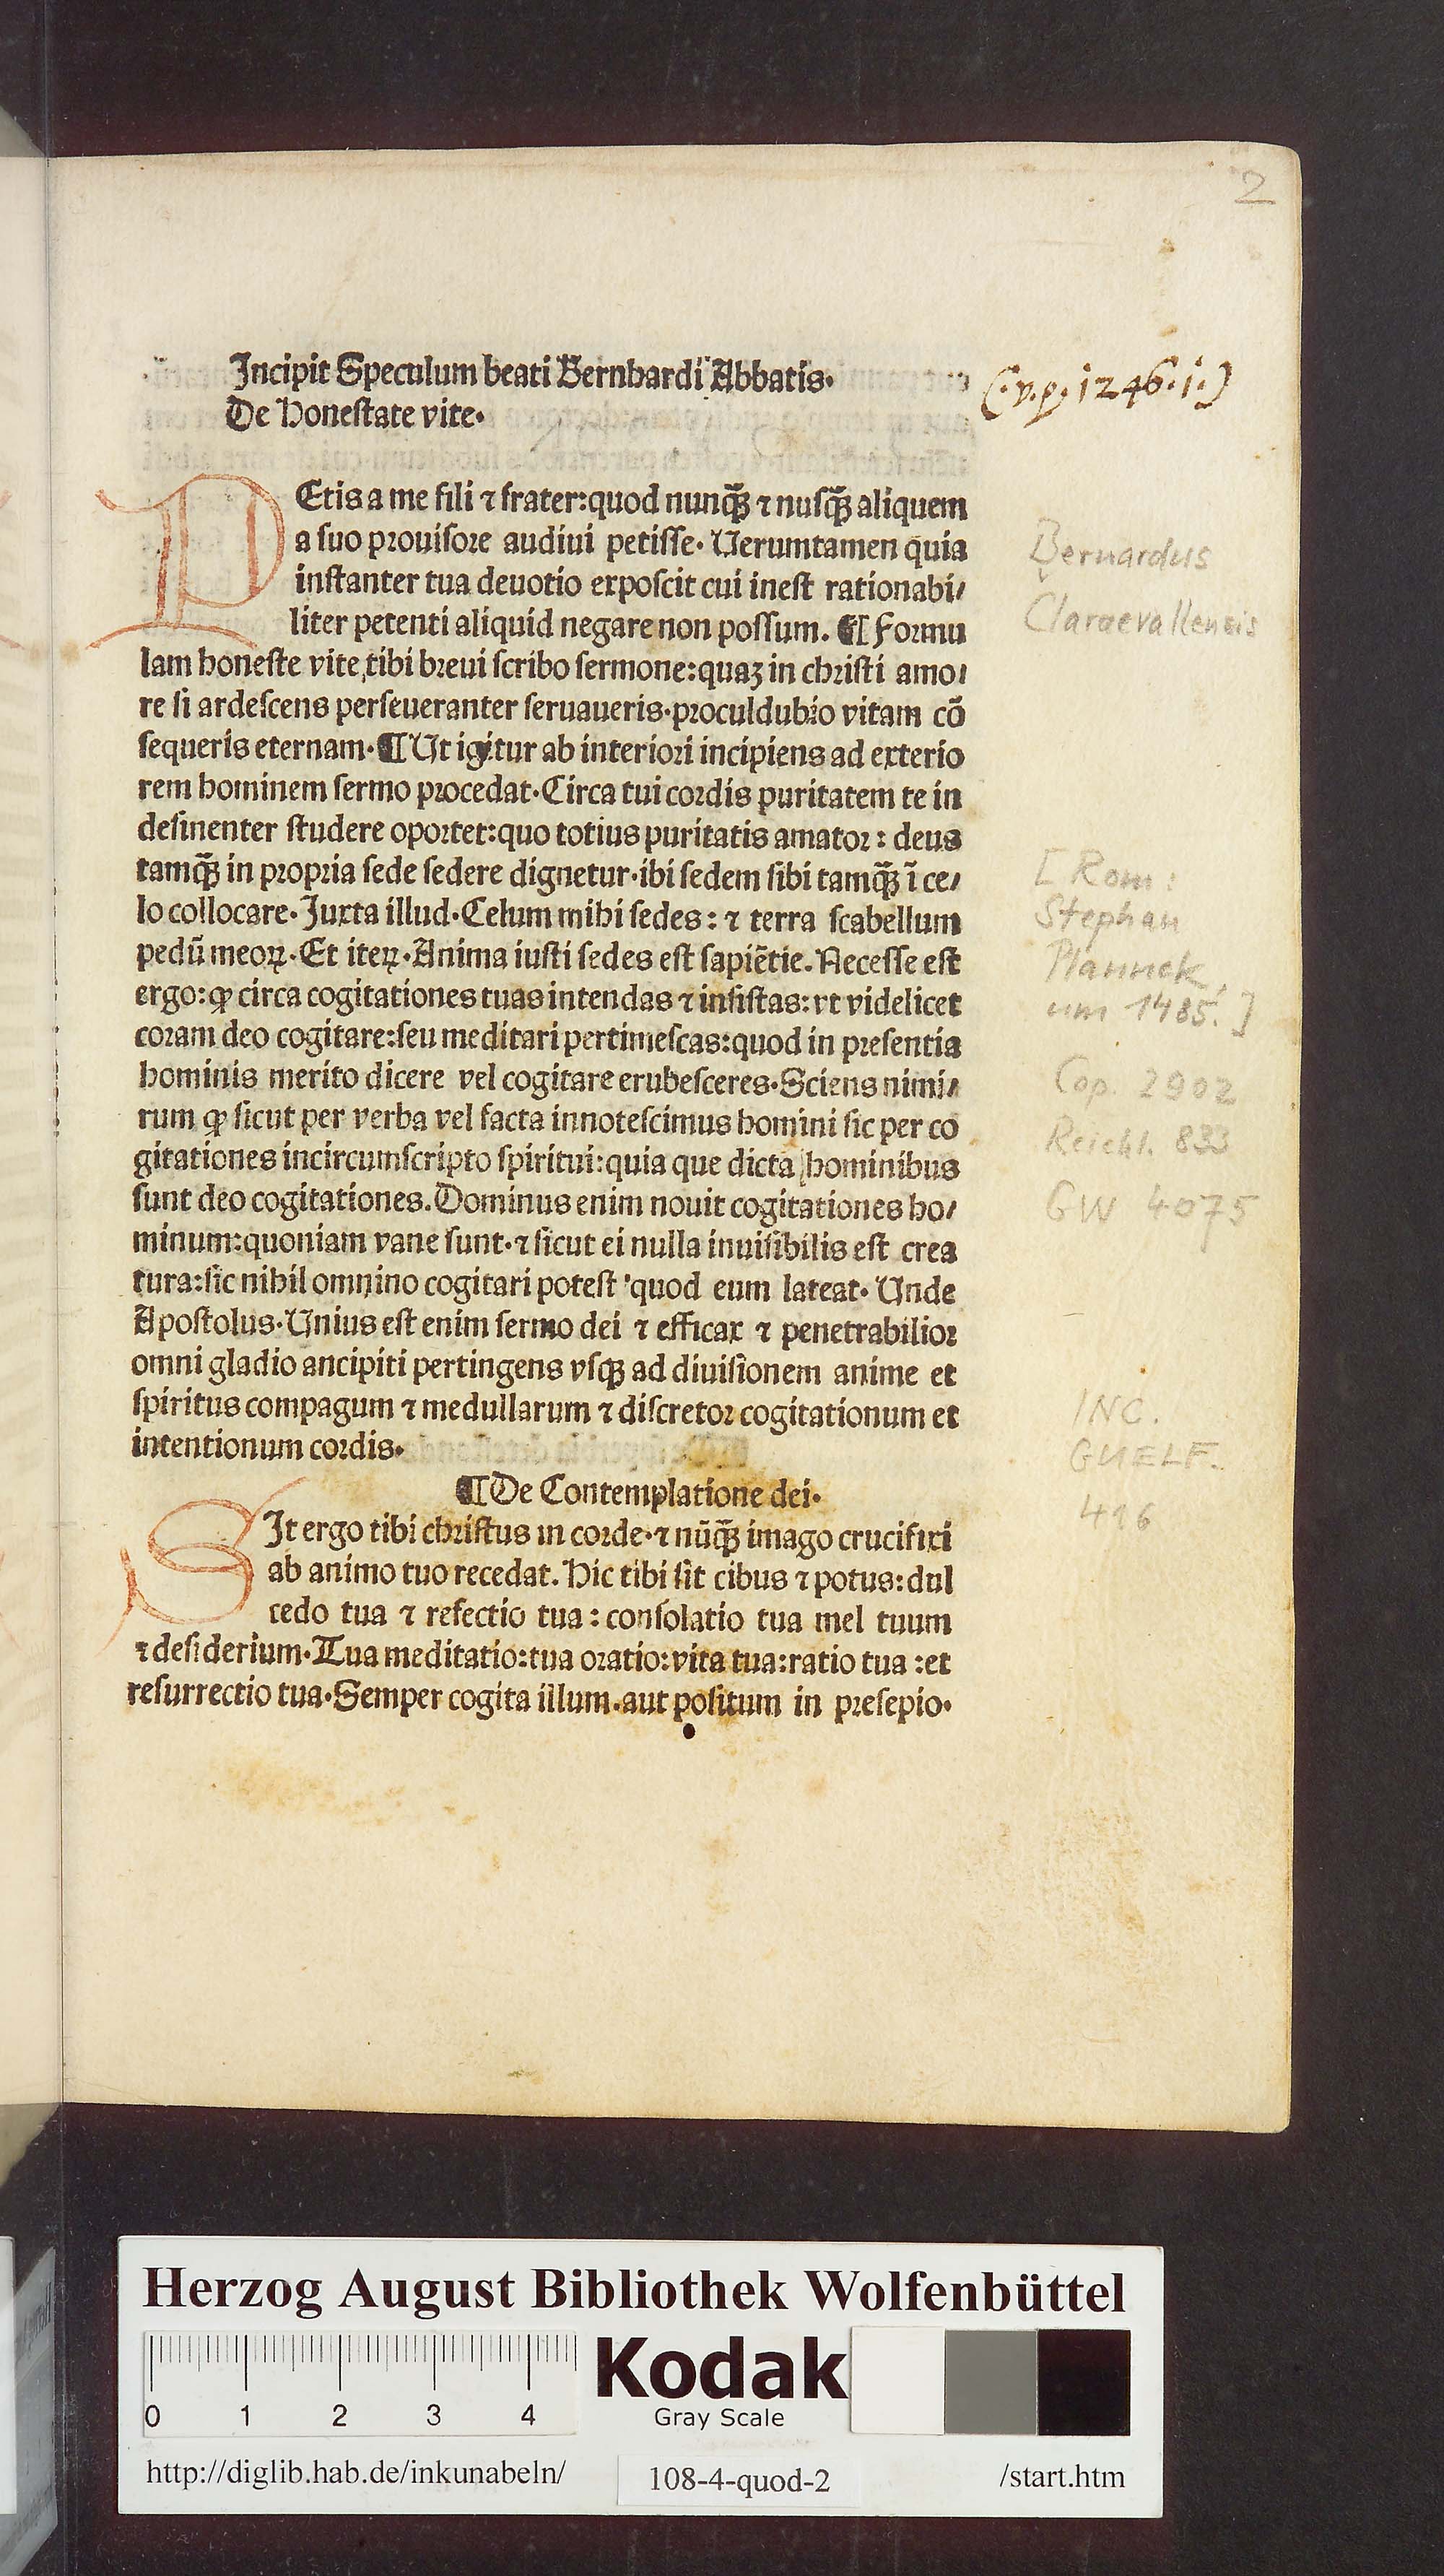 2
Incipit Speculum beati Bernhardi Abbatis.
De honestate vite.
(.v.p. 1246.i.)
PEtis a me fili ⁊ frater:quod nunqꝫ̃ ⁊ nuſqꝫ̃ aliquem
a ſuo prouiſore audiui petiſſe. Uerumtamen quia
inſtanter tua deuotio expoſcit cui ineſt rationabi/
liter petenti aliquid negare non poſſum. ¶ Formu
lam honeſte vite tibi breui ſcribo ſermone:quaꝫ in chriſti amo/
re ſi ardeſcens perſeueranter ſeruaueris.proculdubio vitam cõ
ſequeris eternam.¶Ut igitur ab interiori incipiens ad exterio
rem hominem ſermo procedat.Circa tui cordis puritatem te in
deſinenter ſtudere oportet:quo totius puritatis amator: deus
tamqꝫ̃ in propria ſede ſedere dignetur.ibi ſedem ſibi tamqꝫ̃ ĩ ce/
lo collocare. Juxta illud.Celum mihi ſedes: ⁊ terra ſcabellum
pedũ meoꝝ.Et iteꝝ.Anima iuſti ſedes eſt ſapiẽtie. Neceſſe eſt
ergo:ꝙ circa cogitationes tuas intendas ⁊ inſiſtas:vt videlicet
coram deo cogitare:ſeu meditari pertimeſcas:quod in preſentia
hominis merito dicere vel cogitare erubeſceres.Sciens nimi/
rum ꝙ ſicut per verba vel facta innoteſcimus homini ſic per co
gitationes incircumſcripto ſpiritui:quia que dicta hominibus
ſunt deo cogitationes. Dominus enim nouit cogitationes ho/
minum:quoniam vane ſunt.⁊ ſicut ei nulla inuiſibilis eſt crea
tura:ſic nihil omnino cogitari poteſt quod eum lateat. Unde
Apoſtolus.Unius eſt enim ſermo dei ⁊ efficax ⁊ penetrabilior
omni gladio ancipiti pertingens vſqꝫ ad diuiſionem anime et
ſpiritus compagum ⁊ medullarum ⁊ diſcretor cogitationum et
intentionum cordis.
¶De Contemplatione dei.
SIt ergo tibi chriſtus in corde.⁊ nũqꝫ̃ imago crucifixi
ab animo tuo recedat. Hic tibi ſit cibus ⁊ potus:dul
cedo tua ⁊ refectio tua: conſolatio tua mel tuum
⁊ deſiderium.Tua meditatio:tua oratio:vita tua:ratio tua :et
reſurrectio tua.Semper cogita illum.aut poſitum in preſepio.
Bernardus
Claraevallensis
[Rom:
Stephan
Plannck,
um 1485.]
Cop. 2902
Reichl. 833
GW 4075
INC.
GUELF.
496
Herzog August Bibliothek Wolfenbüttel
0 1 2 3 4
Kodak
Gray Scale
http://diglib.hab.de/inkunabeln/
108-4-quod-2
/start.htm